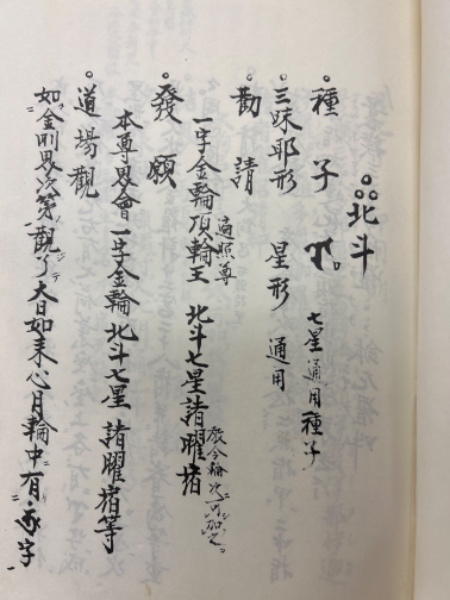 北斗
種子 七星通用種子
三昧耶形 星形 通用
勸請
一字金輪頂輪王 遍照尊 北斗七星諸曜
發願
本尊界會一字金輪北斗七星諸曜宿等
道場觀
如金剛界次第觀了大日如来心月輪中有